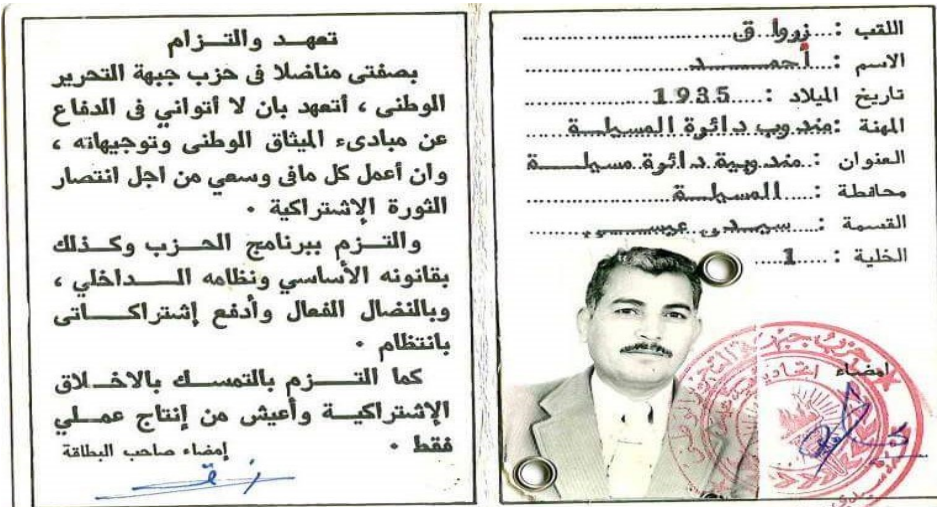 اللقب : زروا ق
الاسم : أحمـــــــد
تاريخ الميلاد : 1935
المهنة : مندوب دائرة المسيلــة
العنوان : مندوبية دائرة مسيلـــة
محافظة : المسيلــة
القسمة : سيدي عيســـى
الخلية : 1
امضاء
تعهــد والتــزام
بصفتى مناضلا فى حزب جبهة التحرير
الوطنى ، أتعهد بان لا أتواني فى الدفاع
عن مبادىء الميثاق الوطنى وتوجيهاته ،
وان أعمل كل مافى وسعي من اجل انتصار
الثورة الإشتراكية .
والتــزم ببرنامج الحــزب وكــذلك
بقانونه الأساسي ونظامه الــــداخلي ،
وبالنضال الفعال وأدفع إشتراكــــاتى
بانتظام .
كما التــــزم بالتمســك بالاخــلاق
الإشتراكيــة وأعيش من إنتاج عملــي
فقط .
إمضاء صاحب البطاقة